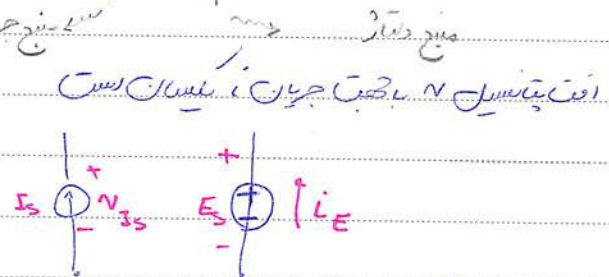 منبع ولتاژ
افت پتانسیل v با جهت جریان i یکسان است
+ +
Is v Is Es iE
- -